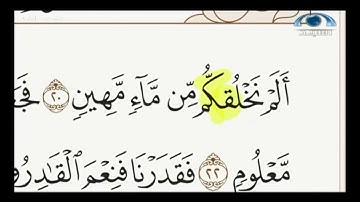 أَلَمْ نَخْلُقكُّم مِّن مَّآءٍ مَّهِينٍ ٢٠ فَجَعَ
مَّعْلُومٍ ٢٢ فَقَدَرْنَا فَنِعْمَ ٱلْقَٰدِرُو